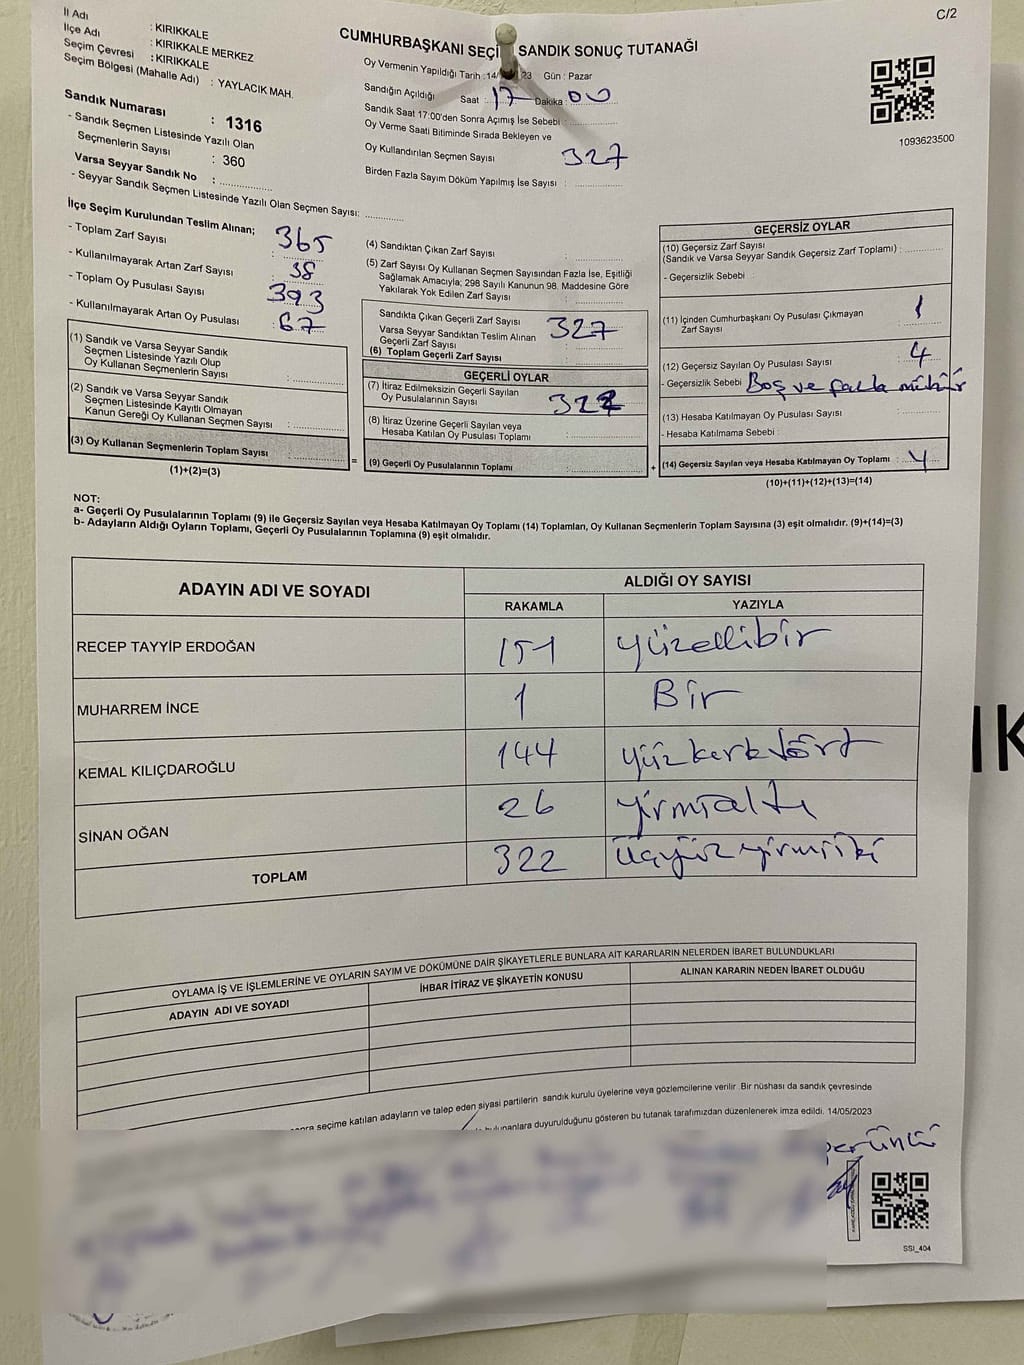 C/2
İl Adı : KIRIKKALE
İlçe Adı : KIRIKKALE MERKEZ
Seçim Çevresi : KIRIKKALE
Seçim Bölgesi (Mahalle Adı) : YAYLACIK MAH.
Sandık Numarası : 1316
- Sandık Seçmen Listesinde Yazılı Olan
Seçmenlerin Sayısı : 360
Varsa Seyyar Sandık No :
- Seyyar Sandık Seçmen Listesinde Yazılı Olan Seçmen Sayısı:
CUMHURBAŞKANI SEÇİ SANDIK SONUÇ TUTANAĞI
Oy Vermenin Yapıldığı Tarih :14/ 23 Gün : Pazar
Sandığın Açıldığı Saat : 17 Dakika : 00
Sandık Saat 17:00'den Sonra Açımış İse Sebebi :
Oy Verme Saati Bitiminde Sırada Bekleyen ve
Oy Kullandırılan Seçmen Sayısı 327
Birden Fazla Sayım Döküm Yapılmış İse Sayısı :
1093623500
İlçe Seçim Kurulundan Teslim Alınan;
- Toplam Zarf Sayısı : 365
- Kullanılmayarak Artan Zarf Sayısı : 38
- Toplam Oy Pusulası Sayısı : 393
- Kullanılmayarak Artan Oy Pusulası : 67
(1) Sandık ve Varsa Seyyar Sandık
Seçmen Listesinde Yazılı Olup
Oy Kullanan Seçmenlerin Sayısı :
(2) Sandık ve Varsa Seyyar Sandık
Seçmen Listesinde Kayıtlı Olmayan
Kanun Gereği Oy Kullanan Seçmen Sayısı :
(3) Oy Kullanan Seçmenlerin Toplam Sayısı :
(1)+(2)=(3)
=
(4) Sandıktan Çıkan Zarf Sayısı :
(5) Zarf Sayısı Oy Kullanan Seçmen Sayısından Fazla İse, Eşitliği
Sağlamak Amacıyla; 298 Sayılı Kanunun 98. Maddesine Göre
Yakılarak Yok Edilen Zarf Sayısı :
Sandıkta Çıkan Geçerli Zarf Sayısı 327
Varsa Seyyar Sandıktan Teslim Alınan
Geçerli Zarf Sayısı :
(6) Toplam Geçerli Zarf Sayısı :
GEÇERLİ OYLAR
(7) İtiraz Edilmeksizin Geçerli Sayılan
Oy Pusulalarının Sayısı 322
(8) İtiraz Üzerine Geçerli Sayılan veya
Hesaba Katılan Oy Pusulası Toplamı :
(9) Geçerli Oy Pusulalarının Toplamı :
+
GEÇERSİZ OYLAR
(10) Geçersiz Zarf Sayısı
(Sandık ve Varsa Seyyar Sandık Geçersiz Zarf Toplamı) :
- Geçersizlik Sebebi :
(11) İçinden Cumhurbaşkanı Oy Pusulası Çıkmayan
Zarf Sayısı : 1
(12) Geçersiz Sayılan Oy Pusulası Sayısı : 4
- Geçersizlik Sebebi : Boş ve fazla mühür
(13) Hesaba Katılmayan Oy Pusulası Sayısı :
- Hesaba Katılmama Sebebi :
(14) Geçersiz Sayılan veya Hesaba Katılmayan Oy Toplamı : 4
(10)+(11)+(12)+(13)=(14)
NOT:
a- Geçerli Oy Pusulalarının Toplamı (9) ile Geçersiz Sayılan veya Hesaba Katılmayan Oy Toplamı (14) Toplamları, Oy Kullanan Seçmenlerin Toplam Sayısına (3) eşit olmalıdır. (9)+(14)=(3)
b- Adayların Aldığı Oyların Toplamı, Geçerli Oy Pusulalarının Toplamına (9) eşit olmalıdır.
ADAYIN ADI VE SOYADI
ALDIĞI OY SAYISI
RAKAMLA YAZIYLA
RECEP TAYYİP ERDOĞAN 151 yüzellibir
MUHARREM İNCE 1 Bir
KEMAL KILIÇDAROĞLU 144 yüzkırkdört
SİNAN OĞAN 26 yirmialtı
TOPLAM 322 üçyüzyirmiiki
OYLAMA İŞ VE İŞLEMLERİNE VE OYLARIN SAYIM VE DÖKÜMÜNE DAİR ŞİKAYETLERLE BUNLARA AİT KARARLARIN NELERDEN İBARET BULUNDUKLARI
ADAYIN ADI VE SOYADI İHBAR İTİRAZ VE ŞİKAYETİN KONUSU ALINAN KARARIN NEDEN İBARET OLDUĞU
seçime katılan adayların ve talep eden siyasi partilerin sandık kurulu üyelerine veya gözlemcilerine verilir. Bir nüshası da sandık çevresinde
bulunanlara duyurulduğunu gösteren bu tutanak tarafımızdan düzenlenerek imza edildi. 14/05/2023
SSI_404
IK